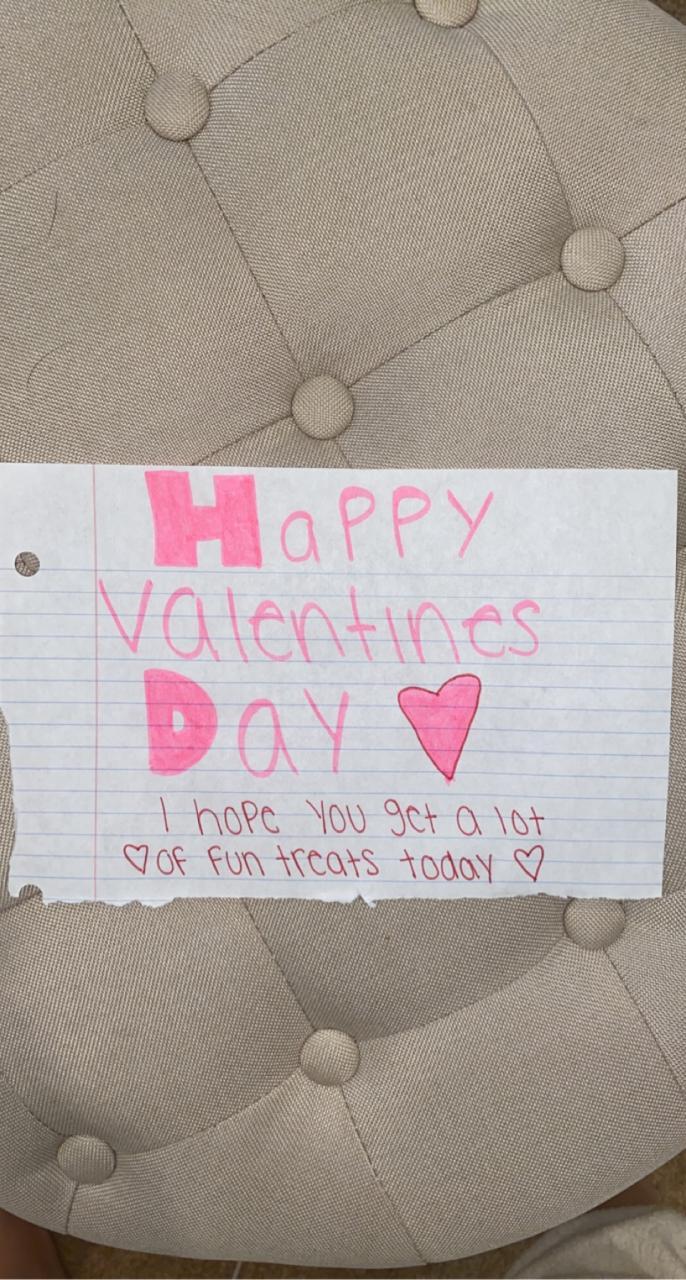 Happy
Valentines
Day ♥
I hope you get a lot
♡ of fun treats today ♡